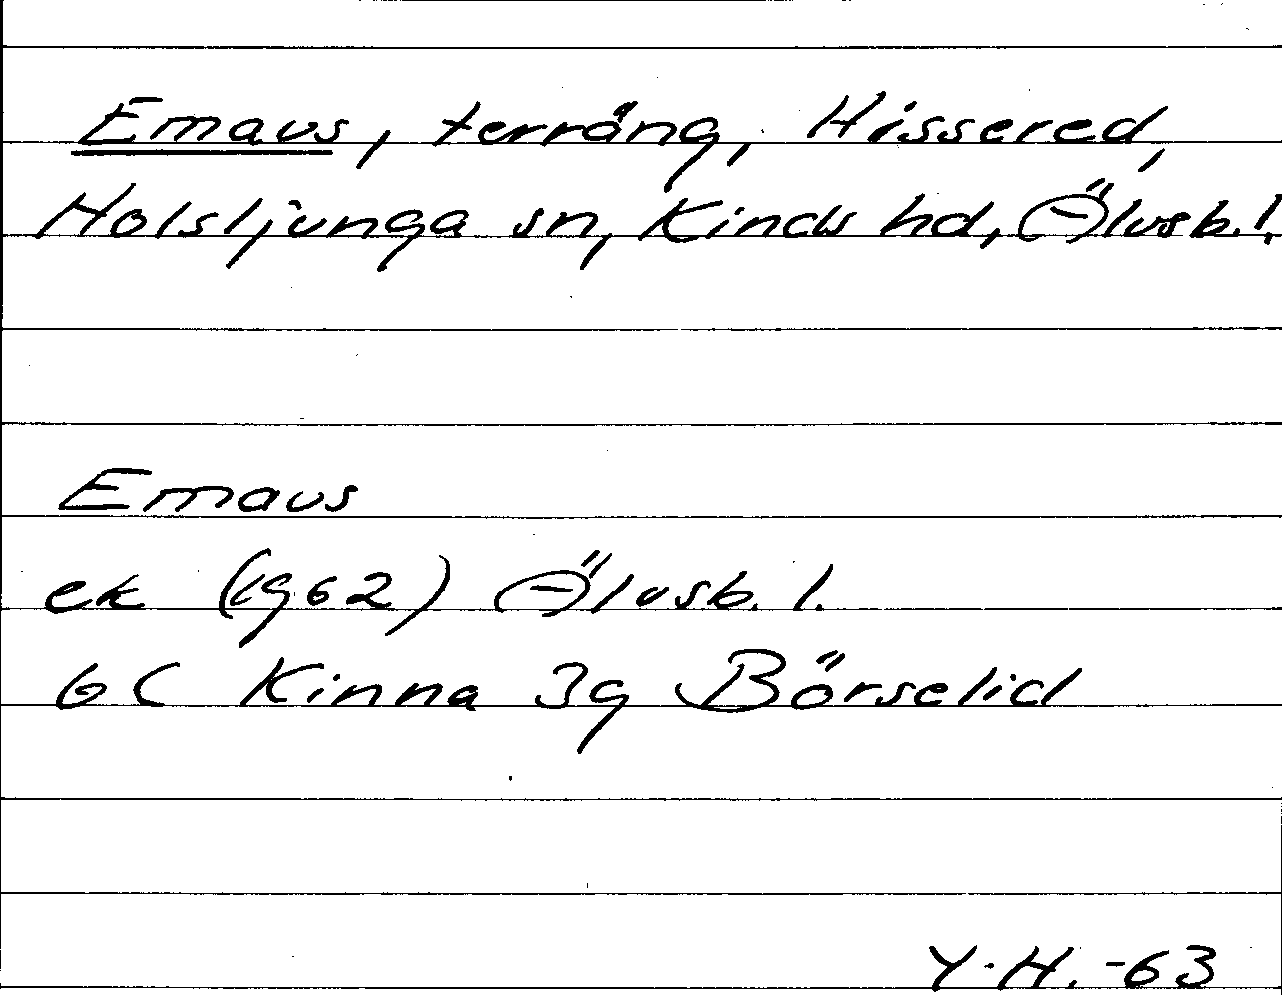 Emaus, terräng, Hissered,
Holsljunga sn, Kinds hd, Älvsb. l.
Emaus
ek (1962) Älvsb. l.
6C Kinna 3g Börselid
Y.H. -63